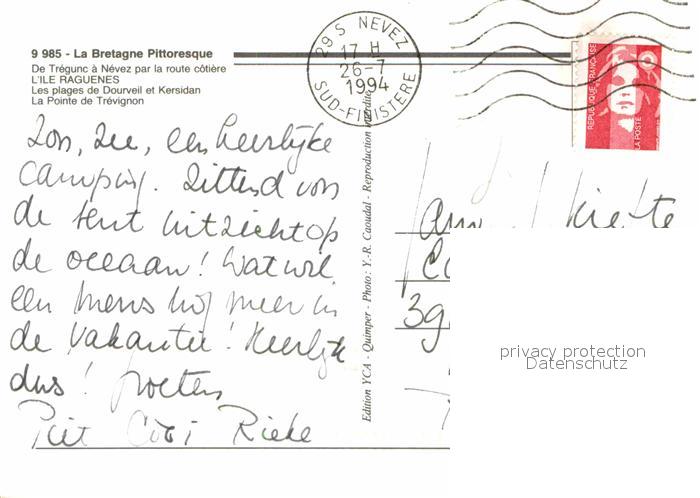 9 985 - La Bretagne Pittoresque
De Trégunc à Névez par la route côtière
L'ILE RAGUENES
Les plages de Dourveil et Kersidan
La Pointe de Trévignon
29 S NEVEZ
17 H
26-7
1994
SUD-FINISTERE
REPUBLIQUE FRANÇAISE
LA POSTE
Zon, Zee, een heerlijke
camping. Zittend voor
de tent uitzicht op
de oceaan! Wat wil
een mens nog meer in
de vakantie! Heerlijk
dus! groeten
Piet Cobi Rieke
Edition YCA - Quimper - Photo : Y.-R. Caoudal - Reproduction interdite
39
privacy protection
Datenschutz